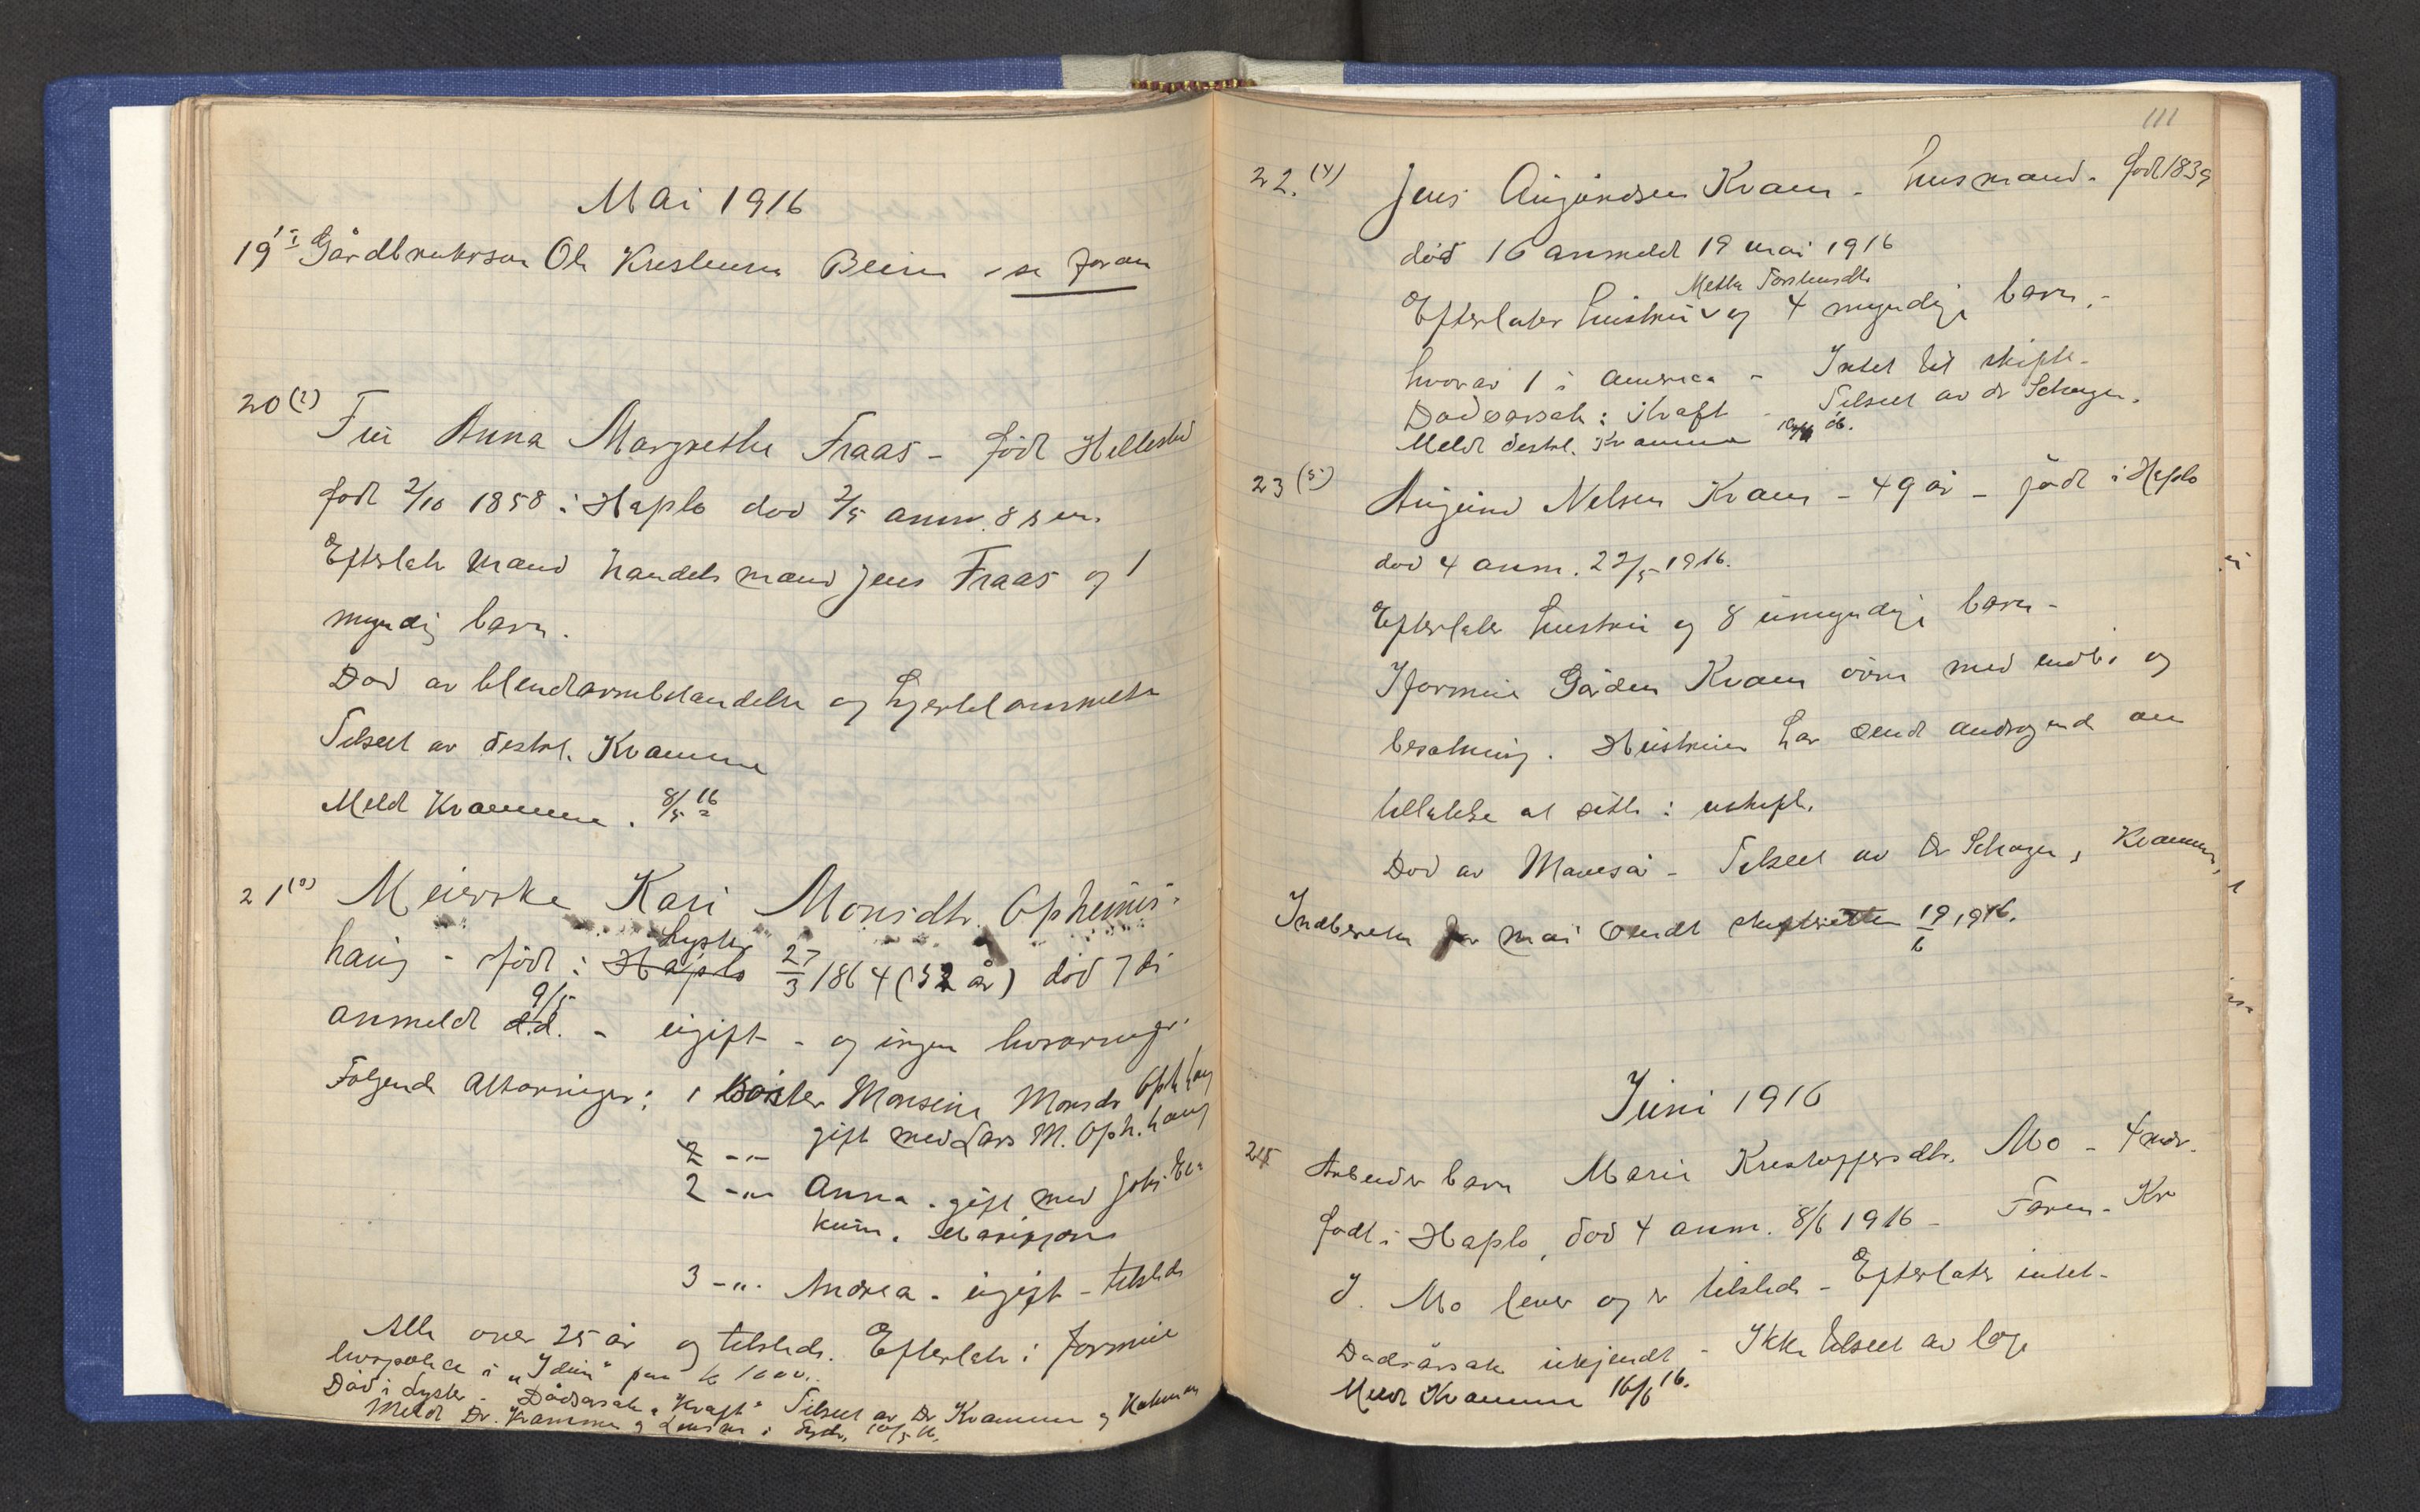 Mai 1916
19 Gårdbrukerson Ole Kristensen Beim - se foran
20 (2) Fru Anna Margrethe Fraas - født Hellested
født 2/10 1858 i Hafslo død 2/5 anm. 8 s m.
Efterlater mand handelsmand Jens Fraas og 1
myndig barn.
Død av blindtarmbetændelse og hjertelammelse
Tilseet av distrl. Kvamme
Meldt Kvamme. 8/5 16
21 (3) Meierske Kari Monsdtr. Opheims-
haug - født i Hafslo Lyster 27/3 1864 (52 år) død 7 ds
anmeldt d.d. 9/5 - ugift - og ingen livsarvinger.
Følgende altarvinger: 1 Søster Monsine Monsdr Oph.haug
gift med Lars M. Oph.haug
2 -"-
2 -"- Anna. gift med Johs
Marifjøren
3 -"- Andrea - ugift - tilstede
Alle over 25 år og tilstede. Efterlater i formue
livspolice i "Idun" paa kr 1000..
Død i Lyster - Dødsarsak "Kræft" Tilseet av Dr Kvamme og
Meldt Dr. Kvamme og Lensm. i Lyster 10/5 16.
111
22. (4) Jens Augundsen Kvam - husmand - født 1839
død 16 anmeldt 19 mai 1916
Efterlater hustru Mette Torsteinsdtr og 4 myndige barn.-
hvorav 1 i Amerika - Intet til skifte-
Dødsorsak: Kræft - Tilseet av dr Schøyen.
Meldt distrl. Kvamme
23 (5) Augund Nelsen Kvam - 49 år - født i Hafslo
død 4 anm. 22/5 1916.
Efterlater hustru og 8 umyndige barn -
I formue Gården Kvam øvre med indbo og
besætning. Hustruen har sendt andragende om
tillatelse at sitte i uskiftet.
Død av - Tilseet av Dr Schøyen, Kvamme,
Indberetn for mai sendt skifteretten 19/6 1916.
Juni 1916
24 Arbeider barn Marie Kristoffersdtr. Mo - 4 mdr.
født i Hafslo, død 4 anm. 8/6 1916 - Faren - Kr
J. Mo lever og er tilstede - Efterlater intet -
Dødsårsak ukjendt - Ikke tilseet av læge
Meldt Kvamme 16/6 16.